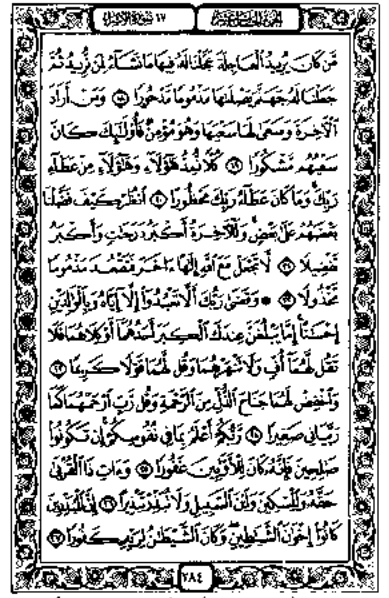 الجزء الخامس عشر
١٧ سورة الإسراء
مَّن كَانَ يُرِيدُ الْعَاجِلَةَ عَجَّلْنَا لَهُ فِيهَا مَا نَشَاءُ لِمَن نُّرِيدُ ثُمَّ
جَعَلْنَا لَهُ جَهَنَّمَ يَصْلَاهَا مَذْمُومًا مَّدْحُورًا ١٨ وَمَنْ أَرَادَ
الْآخِرَةَ وَسَعَىٰ لَهَا سَعْيَهَا وَهُوَ مُؤْمِنٌ فَأُولَٰئِكَ كَانَ
سَعْيُهُم مَّشْكُورًا ١٩ كُلًّا نُّمِدُّ هَٰؤُلَاءِ وَهَٰؤُلَاءِ مِنْ عَطَاءِ
رَبِّكَ وَمَا كَانَ عَطَاءُ رَبِّكَ مَحْظُورًا ٢٠ انظُرْ كَيْفَ فَضَّلْنَا
بَعْضَهُمْ عَلَىٰ بَعْضٍ وَلَلْآخِرَةُ أَكْبَرُ دَرَجَاتٍ وَأَكْبَرُ
تَفْضِيلًا ٢١ لَّا تَجْعَلْ مَعَ اللَّهِ إِلَٰهًا آخَرَ فَتَقْعُدَ مَذْمُومًا
مَّخْذُولًا ٢٢ ۞ وَقَضَىٰ رَبُّكَ أَلَّا تَعْبُدُوا إِلَّا إِيَّاهُ وَبِالْوَالِدَيْنِ
إِحْسَانًا إِمَّا يَبْلُغَنَّ عِندَكَ الْكِبَرَ أَحَدُهُمَا أَوْ كِلَاهُمَا فَلَا
تَقُل لَّهُمَا أُفٍّ وَلَا تَنْهَرْهُمَا وَقُل لَّهُمَا قَوْلًا كَرِيمًا ٢٣
وَاخْفِضْ لَهُمَا جَنَاحَ الذُّلِّ مِنَ الرَّحْمَةِ وَقُل رَّبِّ ارْحَمْهُمَا كَمَا
رَبَّيَانِي صَغِيرًا ٢٤ رَّبُّكُمْ أَعْلَمُ بِمَا فِي نُفُوسِكُمْ إِن تَكُونُوا
صَالِحِينَ فَإِنَّهُ كَانَ لِلْأَوَّابِينَ غَفُورًا ٢٥ وَآتِ ذَا الْقُرْبَىٰ
حَقَّهُ وَالْمِسْكِينَ وَابْنَ السَّبِيلِ وَلَا تُبَذِّرْ تَبْذِيرًا ٢٦ إِنَّ الْمُبَذِّرِينَ
كَانُوا إِخْوَانَ الشَّيَاطِينِ وَكَانَ الشَّيْطَانُ لِرَبِّهِ كَفُورًا ٢٧
٢٨٤